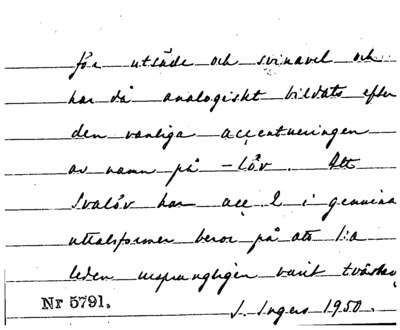 för utsäde och svinavel och
har då analogiskt bildats efter
den vanliga accentueringen
av namn på -löv. Att
Svalöv har acc 2 i genuina
uttalsformer beror på att 1:a
leden ursprungligen varit tvåstav
Nr 5791.
I. Ingers 1950.